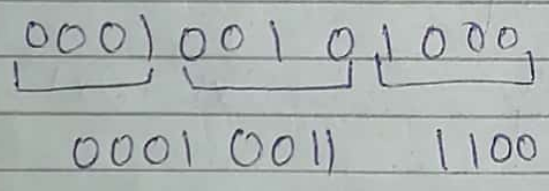 0001 0010 1000
0001 0011 1100